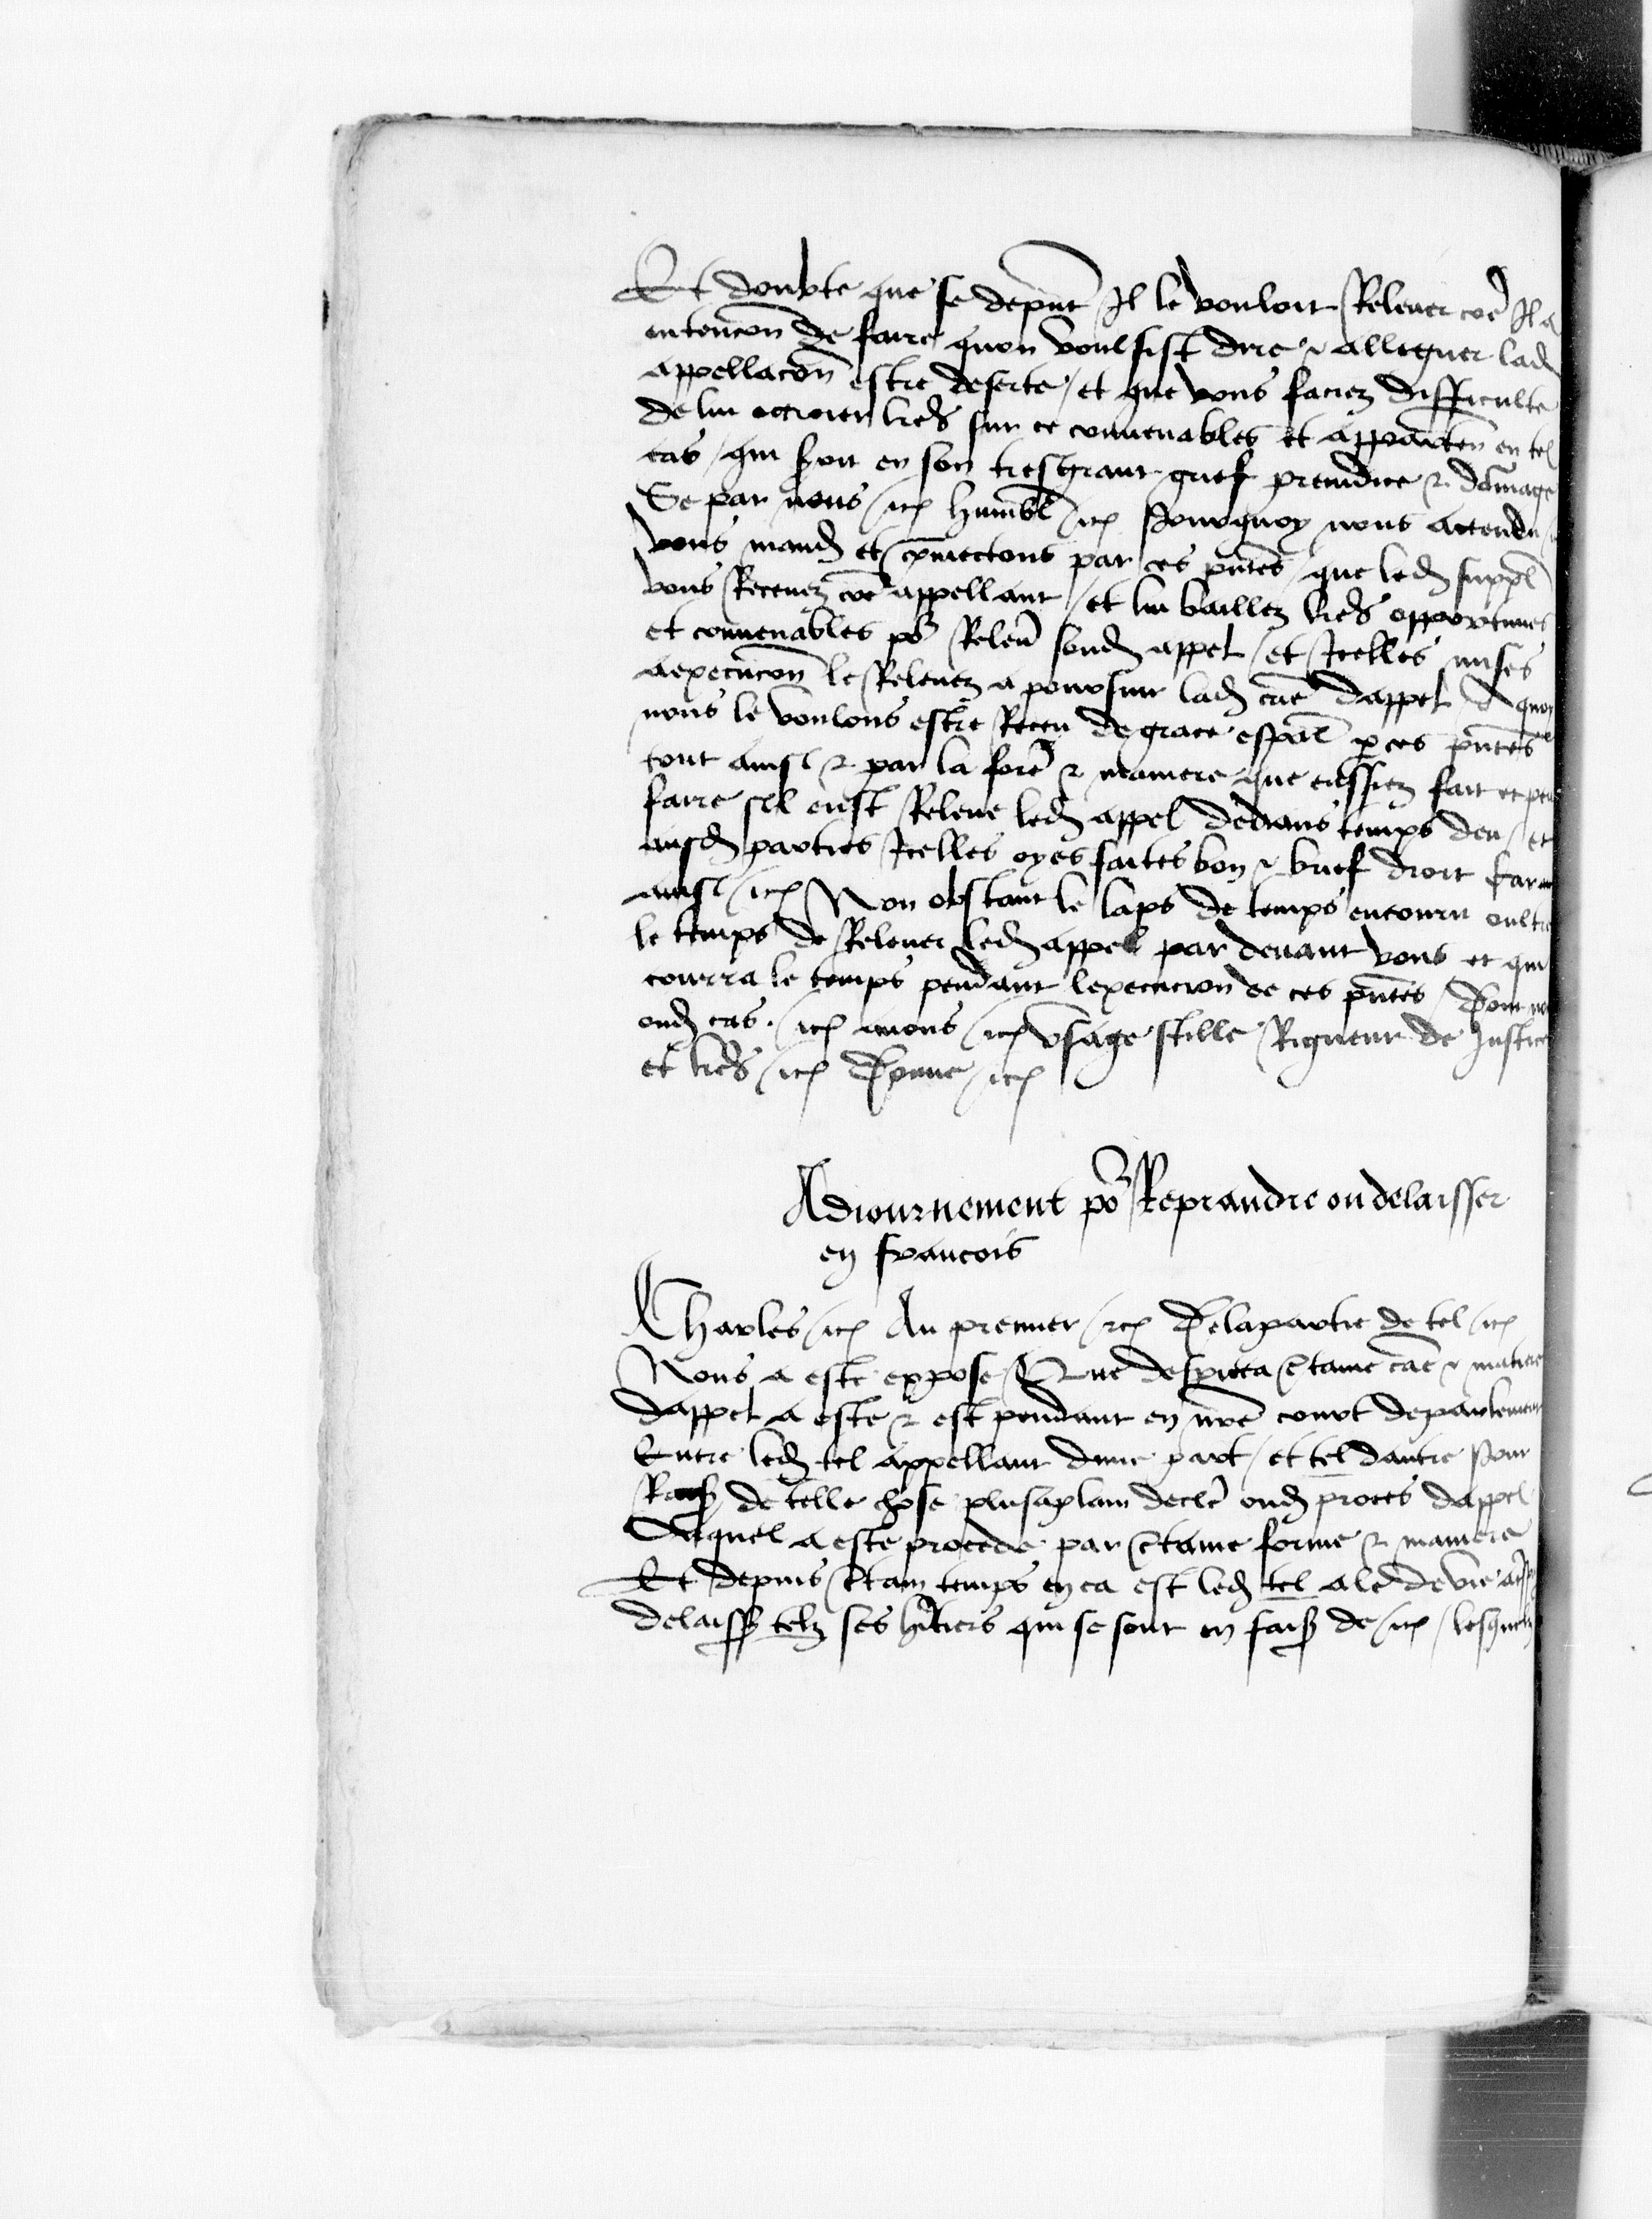 Et doubte que se depnt Il le vouloit Relever coe Il a
entencon de faire quon voulsist dire & alleguer lad
appellacon estre deserte / et que vous faciez difficulte
de lui octroier lres sur ce convenables et apparten en tel
cas / qui seroit en son tresgrant grief preiudice & damage
Se par nous / etc humbl / etc Pourquoy nous actendu
vous mand et comectons par ces pntes / que led suppl
vous Recevez coe appellant / et lui baillez lres opportunes
et convenables por Relever sond appel / et Icelles mises
a execucon le Relevez a poursuir lad cae dappel A quoy
nous le voulons estre Receu de grace espal p ces pntes
tout ainsi & par la forme & maniere que eussiez fait et peu
faire sil eust Releve led appel dedans temps deu / et
ausd parties Icelles oyes faites bon & brief droit Car
ainsi / etc Non obstant le laps de temps encouru oultre
le temps de Relever led appel par devant vous et qui
courra le temps pendant lexecucion de ces pntes / Dont
oud cas / etc avons / etc Usage stille Rigueur de Justice
et lres / etc Donne / etc
Adiournement por Reprandre ou delaisser
en francois
Charles / etc Au premier / etc De la partie de tel / etc
Nous a este expose / Que despieca certaine cae & matiere
dappel a este & est pendant en nre court de parlement
Entre led tel appellant dune part / et tel dautre Pour
de telle chose plus a plain decler oud proces dappel
Auquel a este procede par certaine forme & maniere
Et depuis certain temps en ca est led tel ale de vie
delaisse telz ses heritiers qui se sont en de / etc / lesquelz